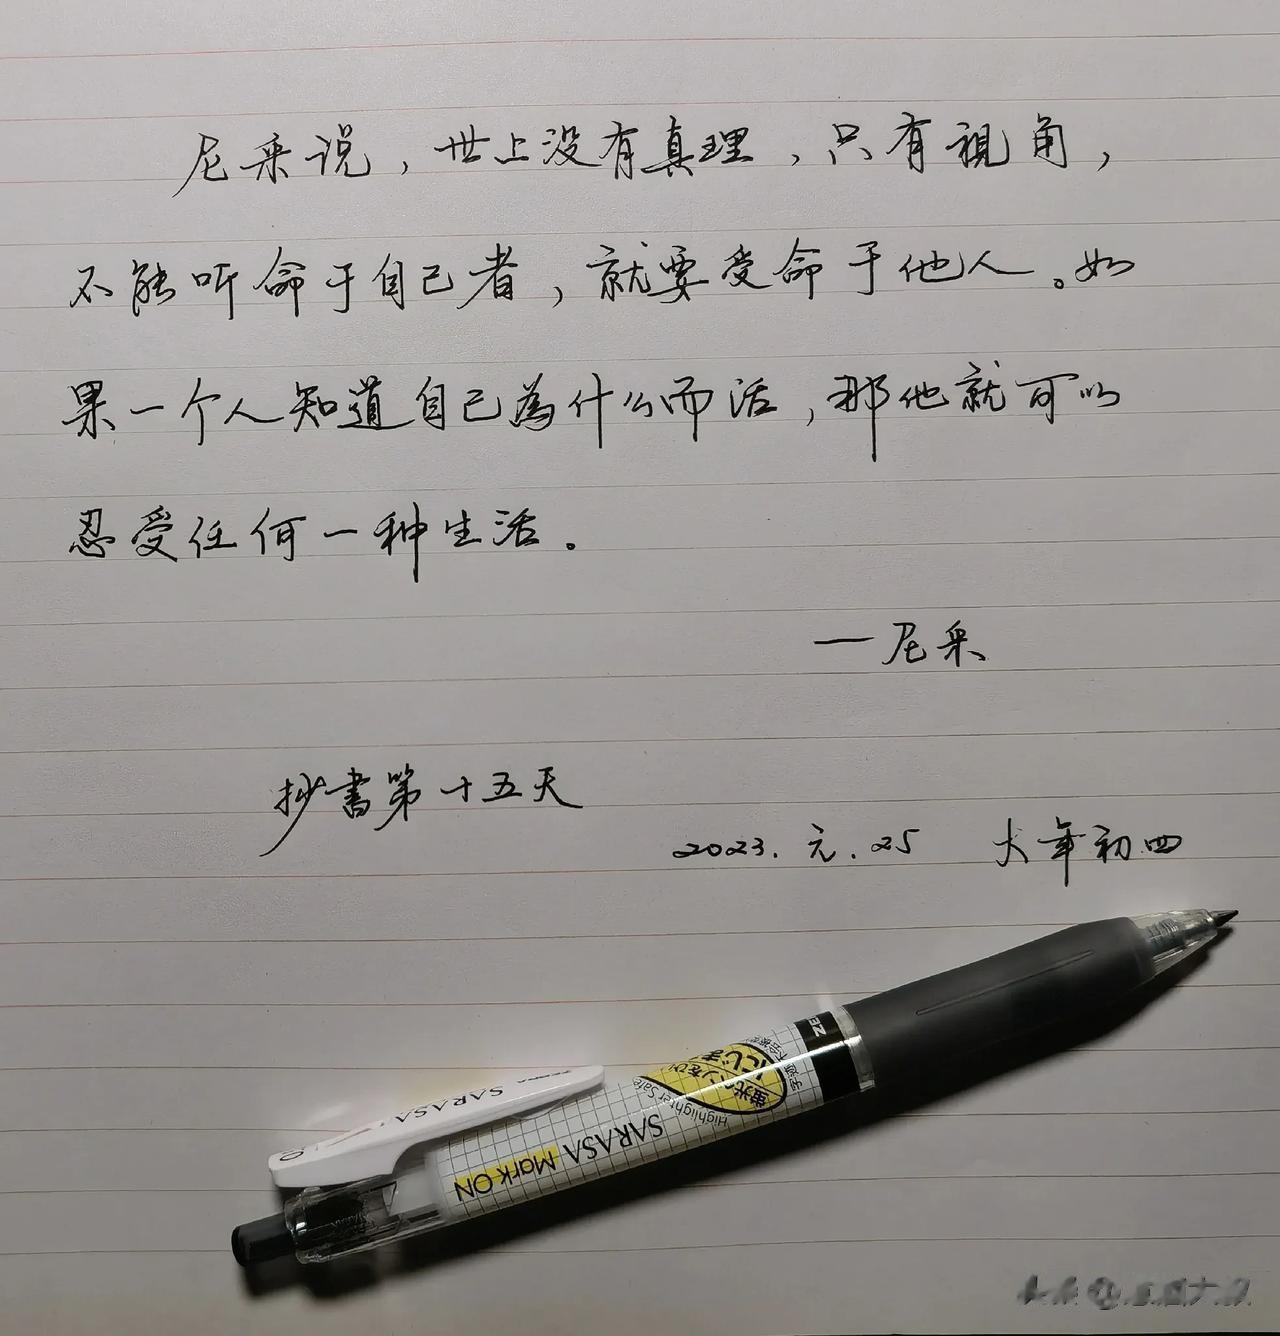 尼采说，世上没有真理，只有視角，
不能听命于自己者，就要受命于他人。如
果一个人知道自己為什么而活，那他就可以
忍受任何一种生活。
一尼采
抄書第十五天
2023.元.25 大年初四
SARASA
SARASA Mark ON
Highlighter Safe
蛍光ペン
にじま
頭条